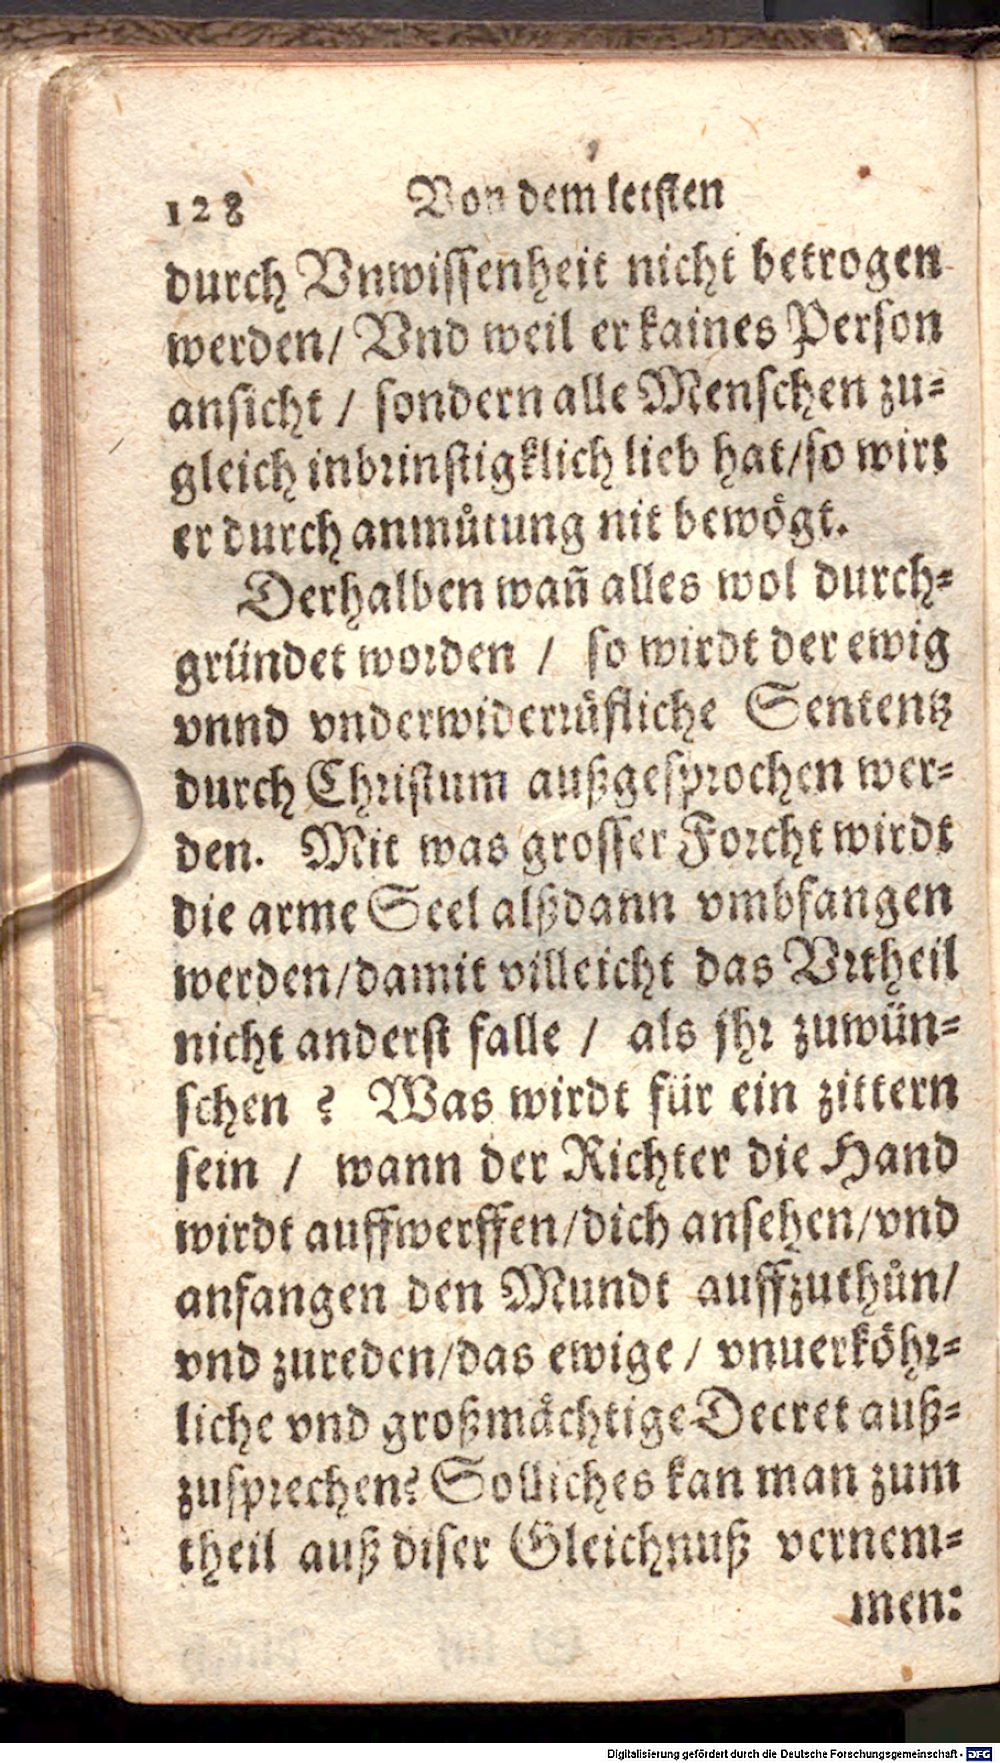 128 Von dem letsten
durch Vnwissenheit nicht betrogen
werden/ Vnd weil er kaines Person
ansicht / sondern alle Menschen zu-
gleich inbrinstigklich lieb hat/so wirt
er durch anmůtung nit bewögt.
Derhalben wañ alles wol durch-
gründet worden / so wirdt der ewig
vnnd vnderwiderrüfliche Sententz
durch Christum außgesprochen wer-
den. Mit was grosser Forcht wirdt
die arme Seel alßdann vmbfangen
werden/damit villeicht das Vrtheil
nicht anderst falle / als jhr zuwün-
schen ? Was wirdt für ein zittern
sein / wann der Richter die Hand
wirdt auffwerffen/dich ansehen/vnd
anfangen den Mundt auffzuthůn/
vnd zureden/das ewige / vnuerköhr-
liche vnd großmächtige Decret auß-
zusprechen? Solliches kan man zum
theil auß diser Gleichnuß vernem-
men:
Digitalisierung gefördert durch die Deutsche Forschungsgemeinschaft - DFG